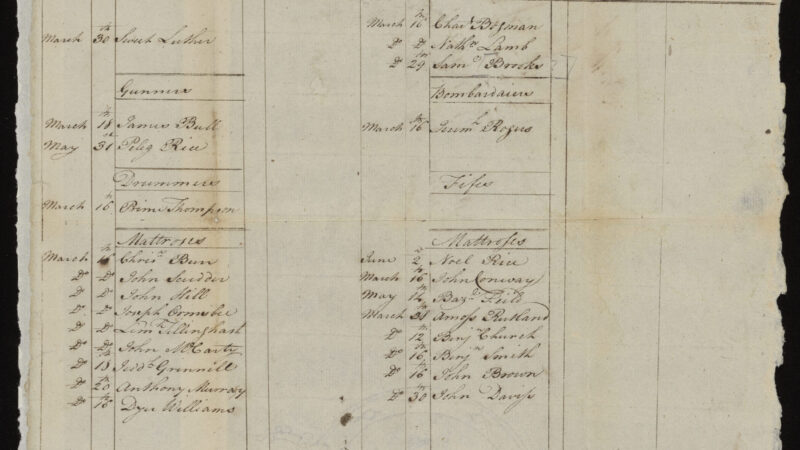 March 30th Sweet Luther
Gunners
March 18th James Bull
May 31st Peleg Rice
Drummers
March 16th Prime Thompson
Mattroses
March 16th Chrisr Burn
Do Do John Scudder
Do Do John Hill
Do Do Joseph Ormsbee
Do Do Lemll Tillinghast
Do Do John McCarty
Do 18th Jeddh Grinnill
Do 20th Anthony Murray
Do 16th Dyer Williams
March 16th Chas Bosman
Do Do Nathn Lamb
Do 29th Saml Brooks
Bombardaiers
March 16th Jeremh Rogers
Fifes
Mattroses
June 2 Noel Rice
March 16th John Conway
May 12th
March 31st Amoss Rutland
Do 12th Benjn Church
Do 16th Benjn Smith
Do 16th John Brown
Do 30th John Daviss